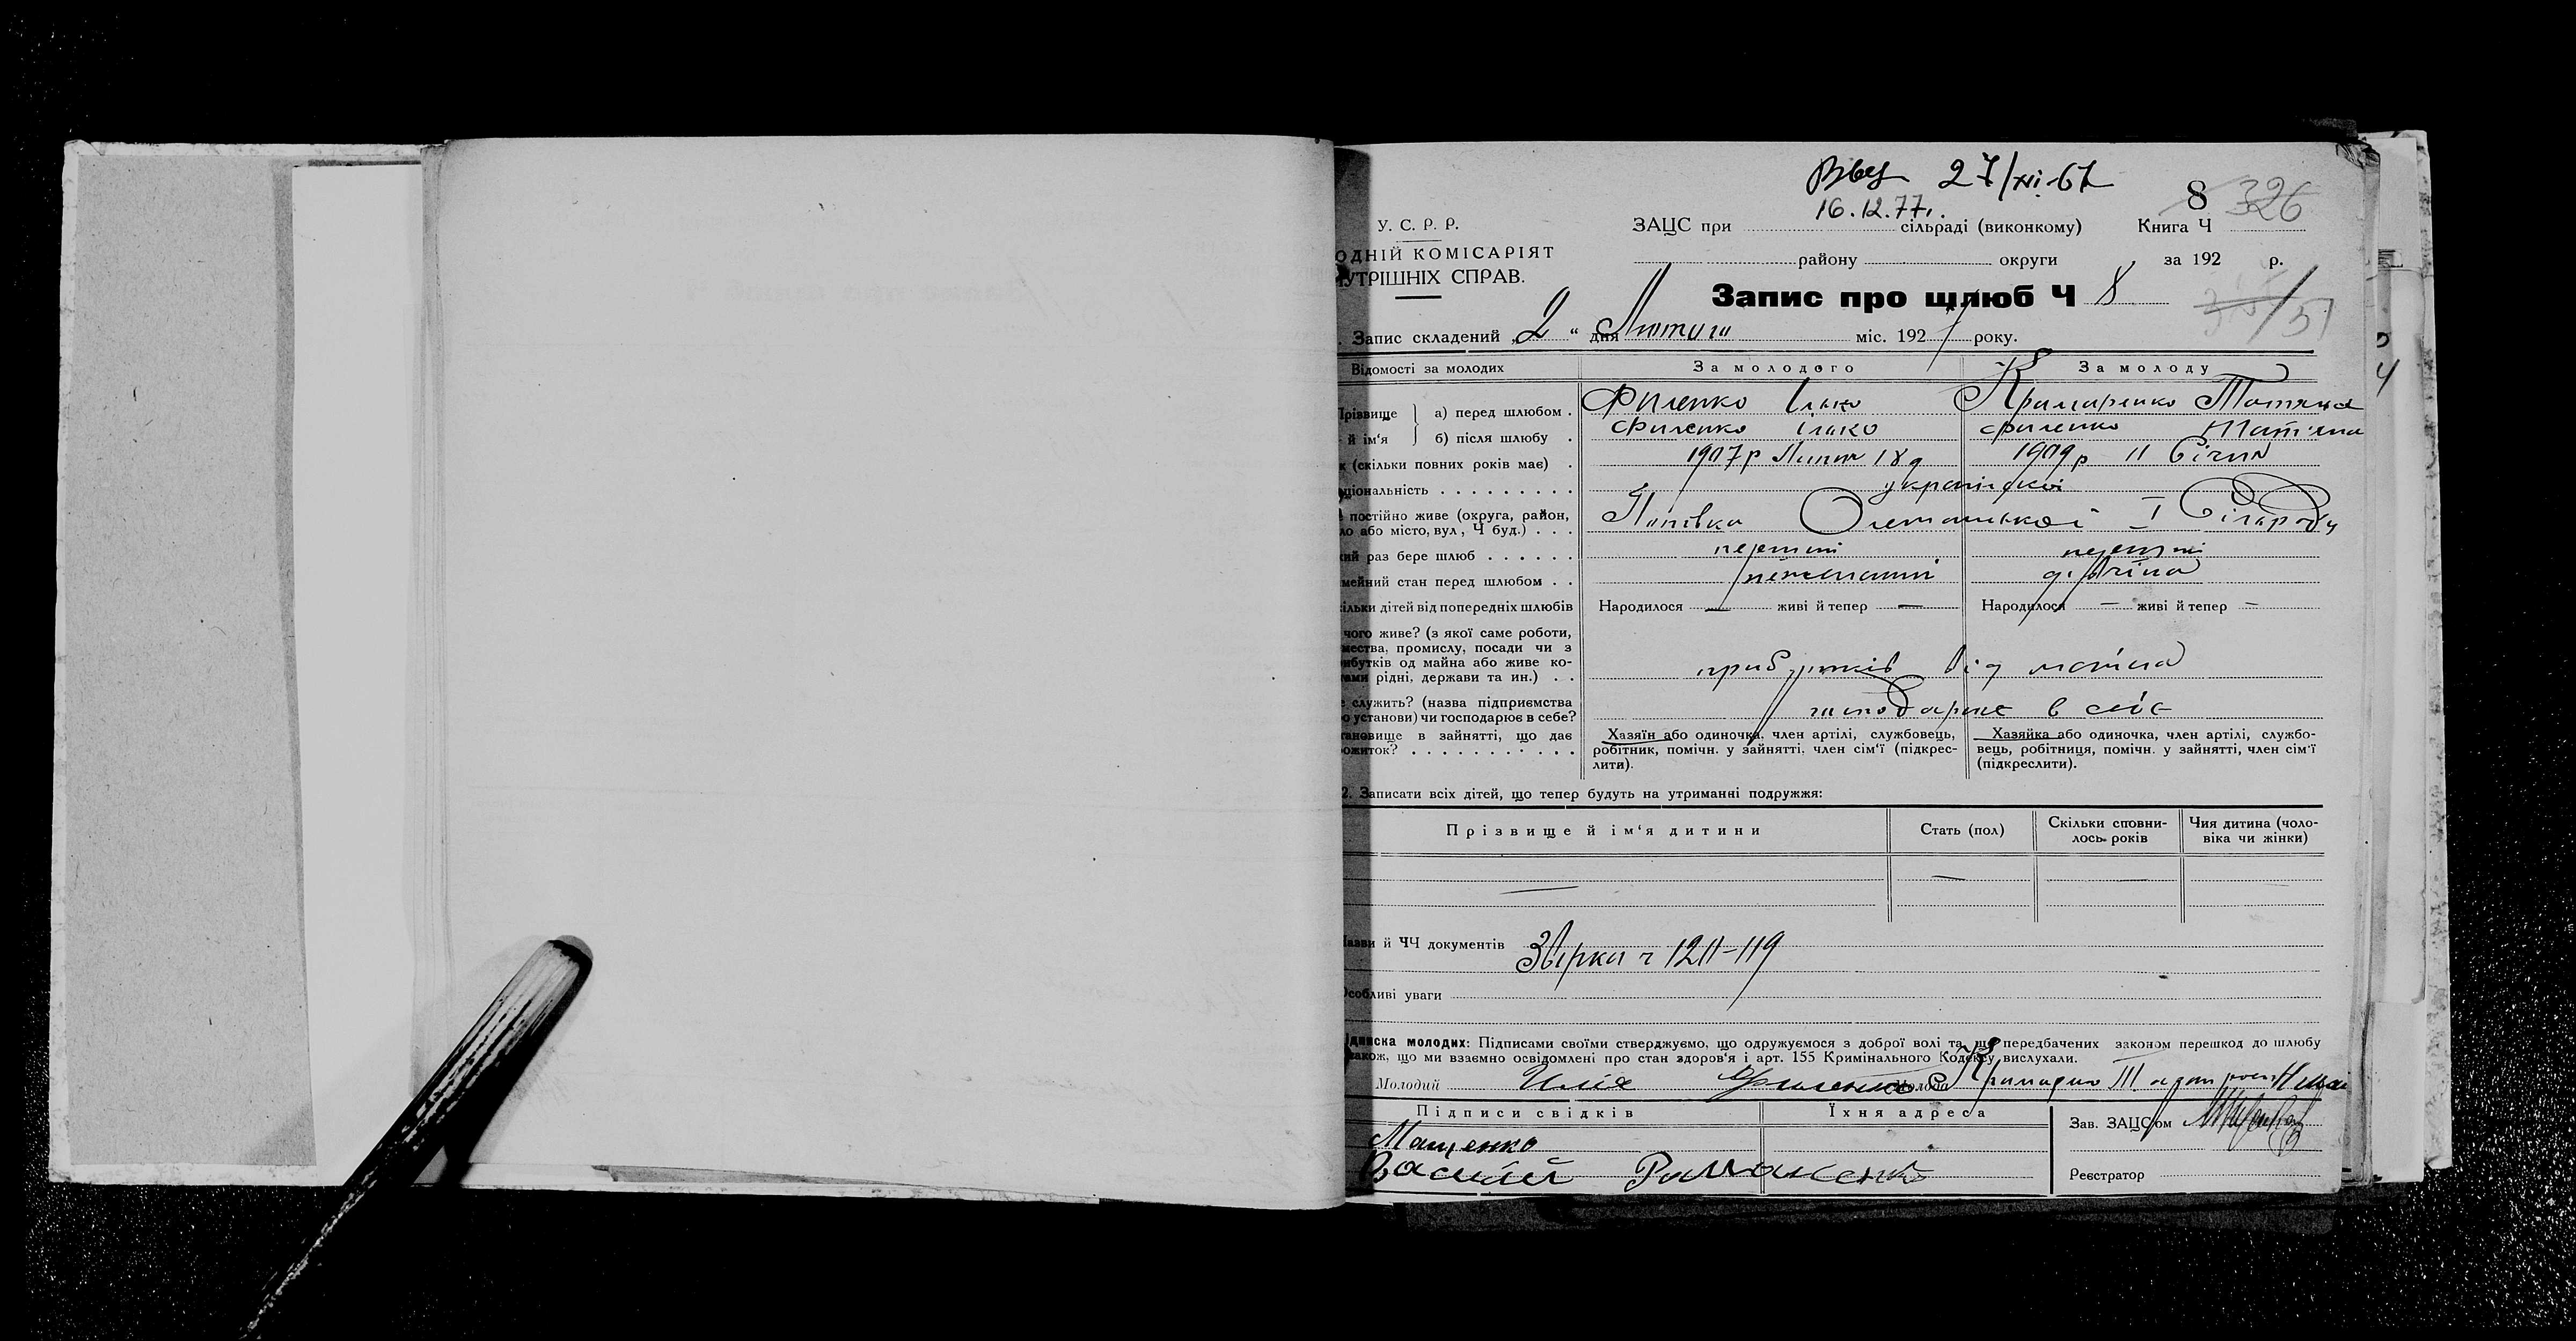 27/XI-67
16.12.77г.
8 326
У. С. Р. Р.
ОДНІЙ КОМІСАРІЯТ
УТРІШНІХ СПРАВ.
ЗАЦС при сільраді (виконкому) Книга Ч
району округи за 192 р.
Запис про шлюб Ч 8
Запис складений „2“ дня Лютого міс. 1927 року.
Відомості за молодих За молодого За молоду
Прізвище й ім‘я
а) перед шлюбом . Филенко Ілько Крамаренко Татяна
б) після шлюбу . Филенко Ілько Филенко Татяна
к (скільки повних років має) . 1907р Липня 18д 1909р 11 Січня
ціональність . . . . . . . . . української
постійно живе (округа, район,
ло або місто, вул , Ч буд.) . . . Попівка I Сільради
кий раз бере шлюб . . . . . . перший перший
мейний стан перед шлюбом . . нежонатий дівчина
ільки дітей від попередніх шлюбів Народилося — живі й тепер — Народилося — живі й тепер —
чого живе? (з якої саме роботи,
мества, промислу, посади чи з
ибутків од майна або живе ко-
тами рідні, держави та ин.) . . прибутків від майна
служить? (назва підприємства
о установи) чи господарює в себе? господарює в себе
тановище в зайнятті, що дає
ожиток? . . . . . . . . . . .
Хазяїн або одиночка, член артілі, службовець,
робітник, помічн. у зайнятті, член сім‘ї (підкрес-
лити).
Хазяйка або одиночка, член артілі, службо-
вець, робітниця, помічн. у зайнятті, член сім‘ї
(підкреслити).
2. Записати всіх дітей, що тепер будуть на утриманні подружжя:
Прізвище й ім‘я дитини
Стать (пол)
Скільки сповни-
лось років
Чия дитина (чоло-
віка чи жінки)
Назви й ЧЧ документів Звірки ч 1211-119
Особливі уваги
ідписка молодих: Підписами своїми стверджуємо, що одружуємося з доброї волі та що передбачених законом перешкод до шлюбу
також, що ми взаємно освідомлені про стан здоров‘я і арт. 155 Кримінального Кодексу вислухали.
Молодий Илія Филенко Молода
Підписи свідків Їхня адреса
Зав. ЗАЦС‘ом
Мащенко
Василий Романенко
Реєстратор